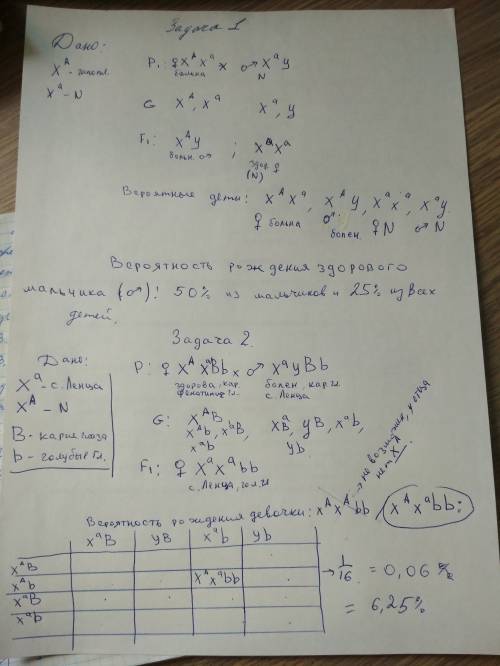 Задача 1
Дано:
X^A - гипопл.
X^a - N
P₁: ♀ X^A X^a x ♂ X^a y
больна N
G X^A, X^a X^a, y
F₁: X^A y ; X^a X^a
больн. ♂ здор. ♀
(N)
Вероятные дети: X^A X^a, X^A y, X^a X^a, X^a y
♀ больна ♂ болен. ♀ N ♂ N
Вероятность рождения здорового
мальчика (♂)! 50% из мальчиков и 25% из всех
детей.
Задача 2.
Дано:
X^a - с. Ленца
X^A - N
B - карие глаза
b - голубые гл.
P: ♀ X^A X^a Bb x ♂ X^a y Bb
здорова, кар. болен, кар. гл.
фенотип гл. с. Ленца
G: X^A B, X^A b, X^a B, X^a b
X^a B, yB, X^a b, yb
F₁: ♀ X^a X^a bb
с. Ленца, гол. гл
Вероятность рождения девочки: X^A X^A bb, X^A X^a bb;
→ не возможен, у отца
нет X^A.
X^a B yB X^a b yb
X^A B
X^A b X^A X^a bb → 1/16 = 0,06
X^a B = 6,25%
X^a b